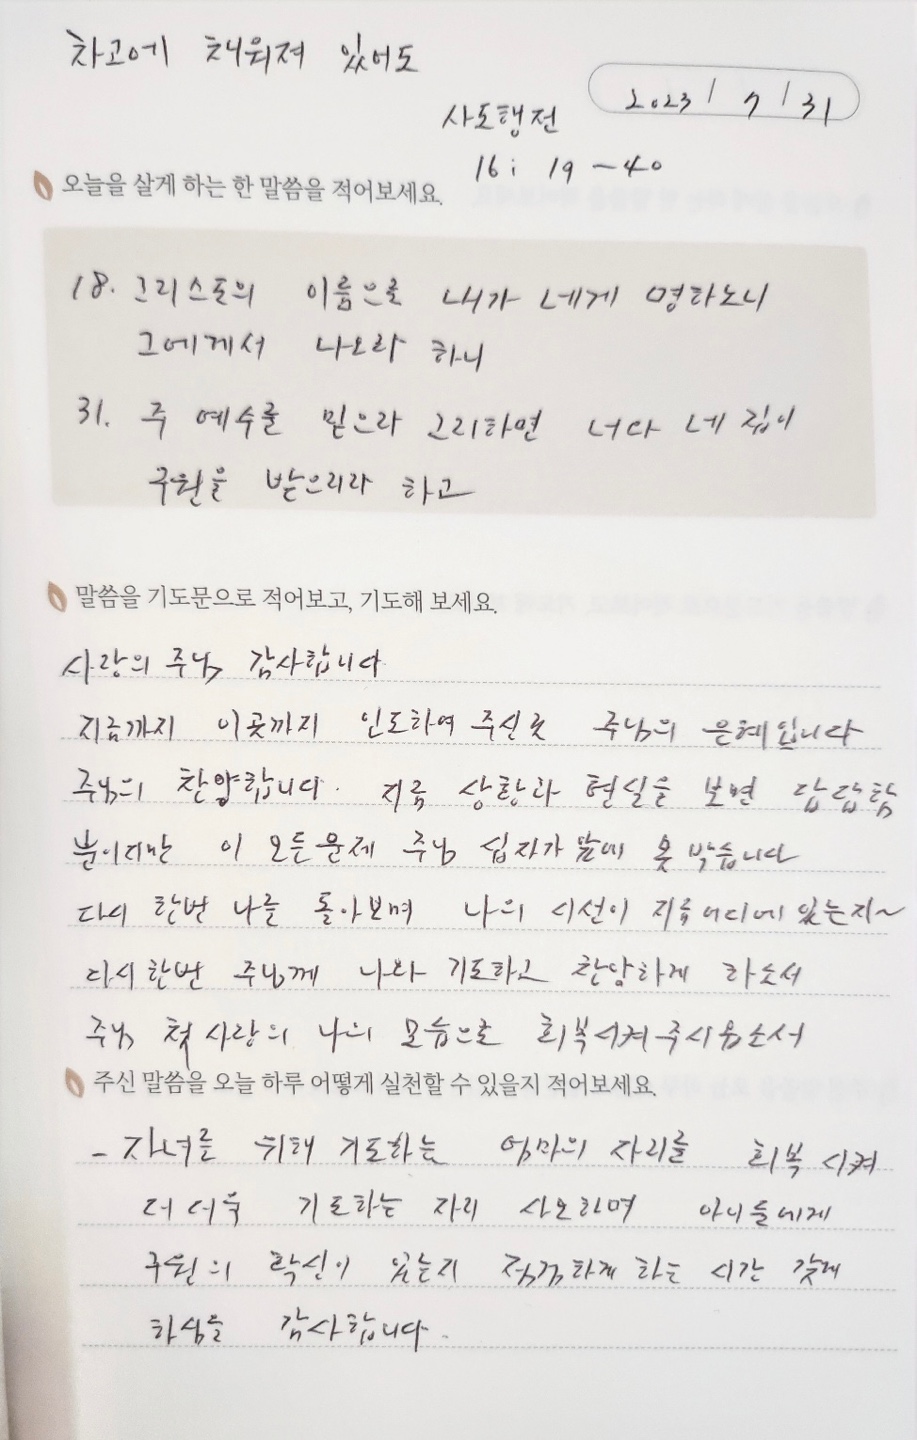 차고에 채워져 있어도
2023 / 7 / 31
사도행전
16 : 19 ~ 40
오늘을 살게 하는 한 말씀을 적어보세요.
18. 그리스도의 이름으로 내가 네게 명하노니
그에게서 나오라 하니
31. 주 예수를 믿으라 그리하면 너다 네 집이
구원을 받으리라 하고
말씀을 기도문으로 적어보고, 기도해 보세요.
사랑의 주님 감사합니다
지금까지 이곳까지 인도하여 주신 것 주님의 은혜입니다
주님의 찬양합니다. 지금 상황과 현실을 보면 답답함
뿐이지만 이 모든 문제 주님 십자가 앞에 못 박습니다
다시 한번 나를 돌아보며 나의 시선이 지금 어디에 있는지~
다시 한번 주님께 나와 기도하고 찬양하게 하소서
주님 첫사랑의 나의 모습으로 회복시켜 주시옵소서
주신 말씀을 오늘 하루 어떻게 실천할 수 있을지 적어보세요.
- 자녀를 위해 기도하는 엄마의 자리를 회복 시켜
더 더욱 기도하는 자리 사모하며 아이들에게
구원의 확신이 있는지 점검하게 하는 시간 갖게
하심을 감사합니다.